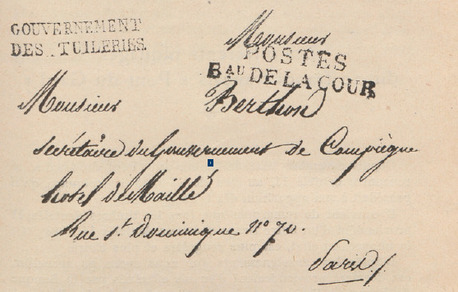 GOUVERNEMENT
DES TUILERIES.
Monsieur
POSTES
Bau DE LA COUR
Monsieur Berthon
secrétaire du Gouvernement de Compiègne
hotel de Maillé
Rue St. Dominique No 70.
Paris